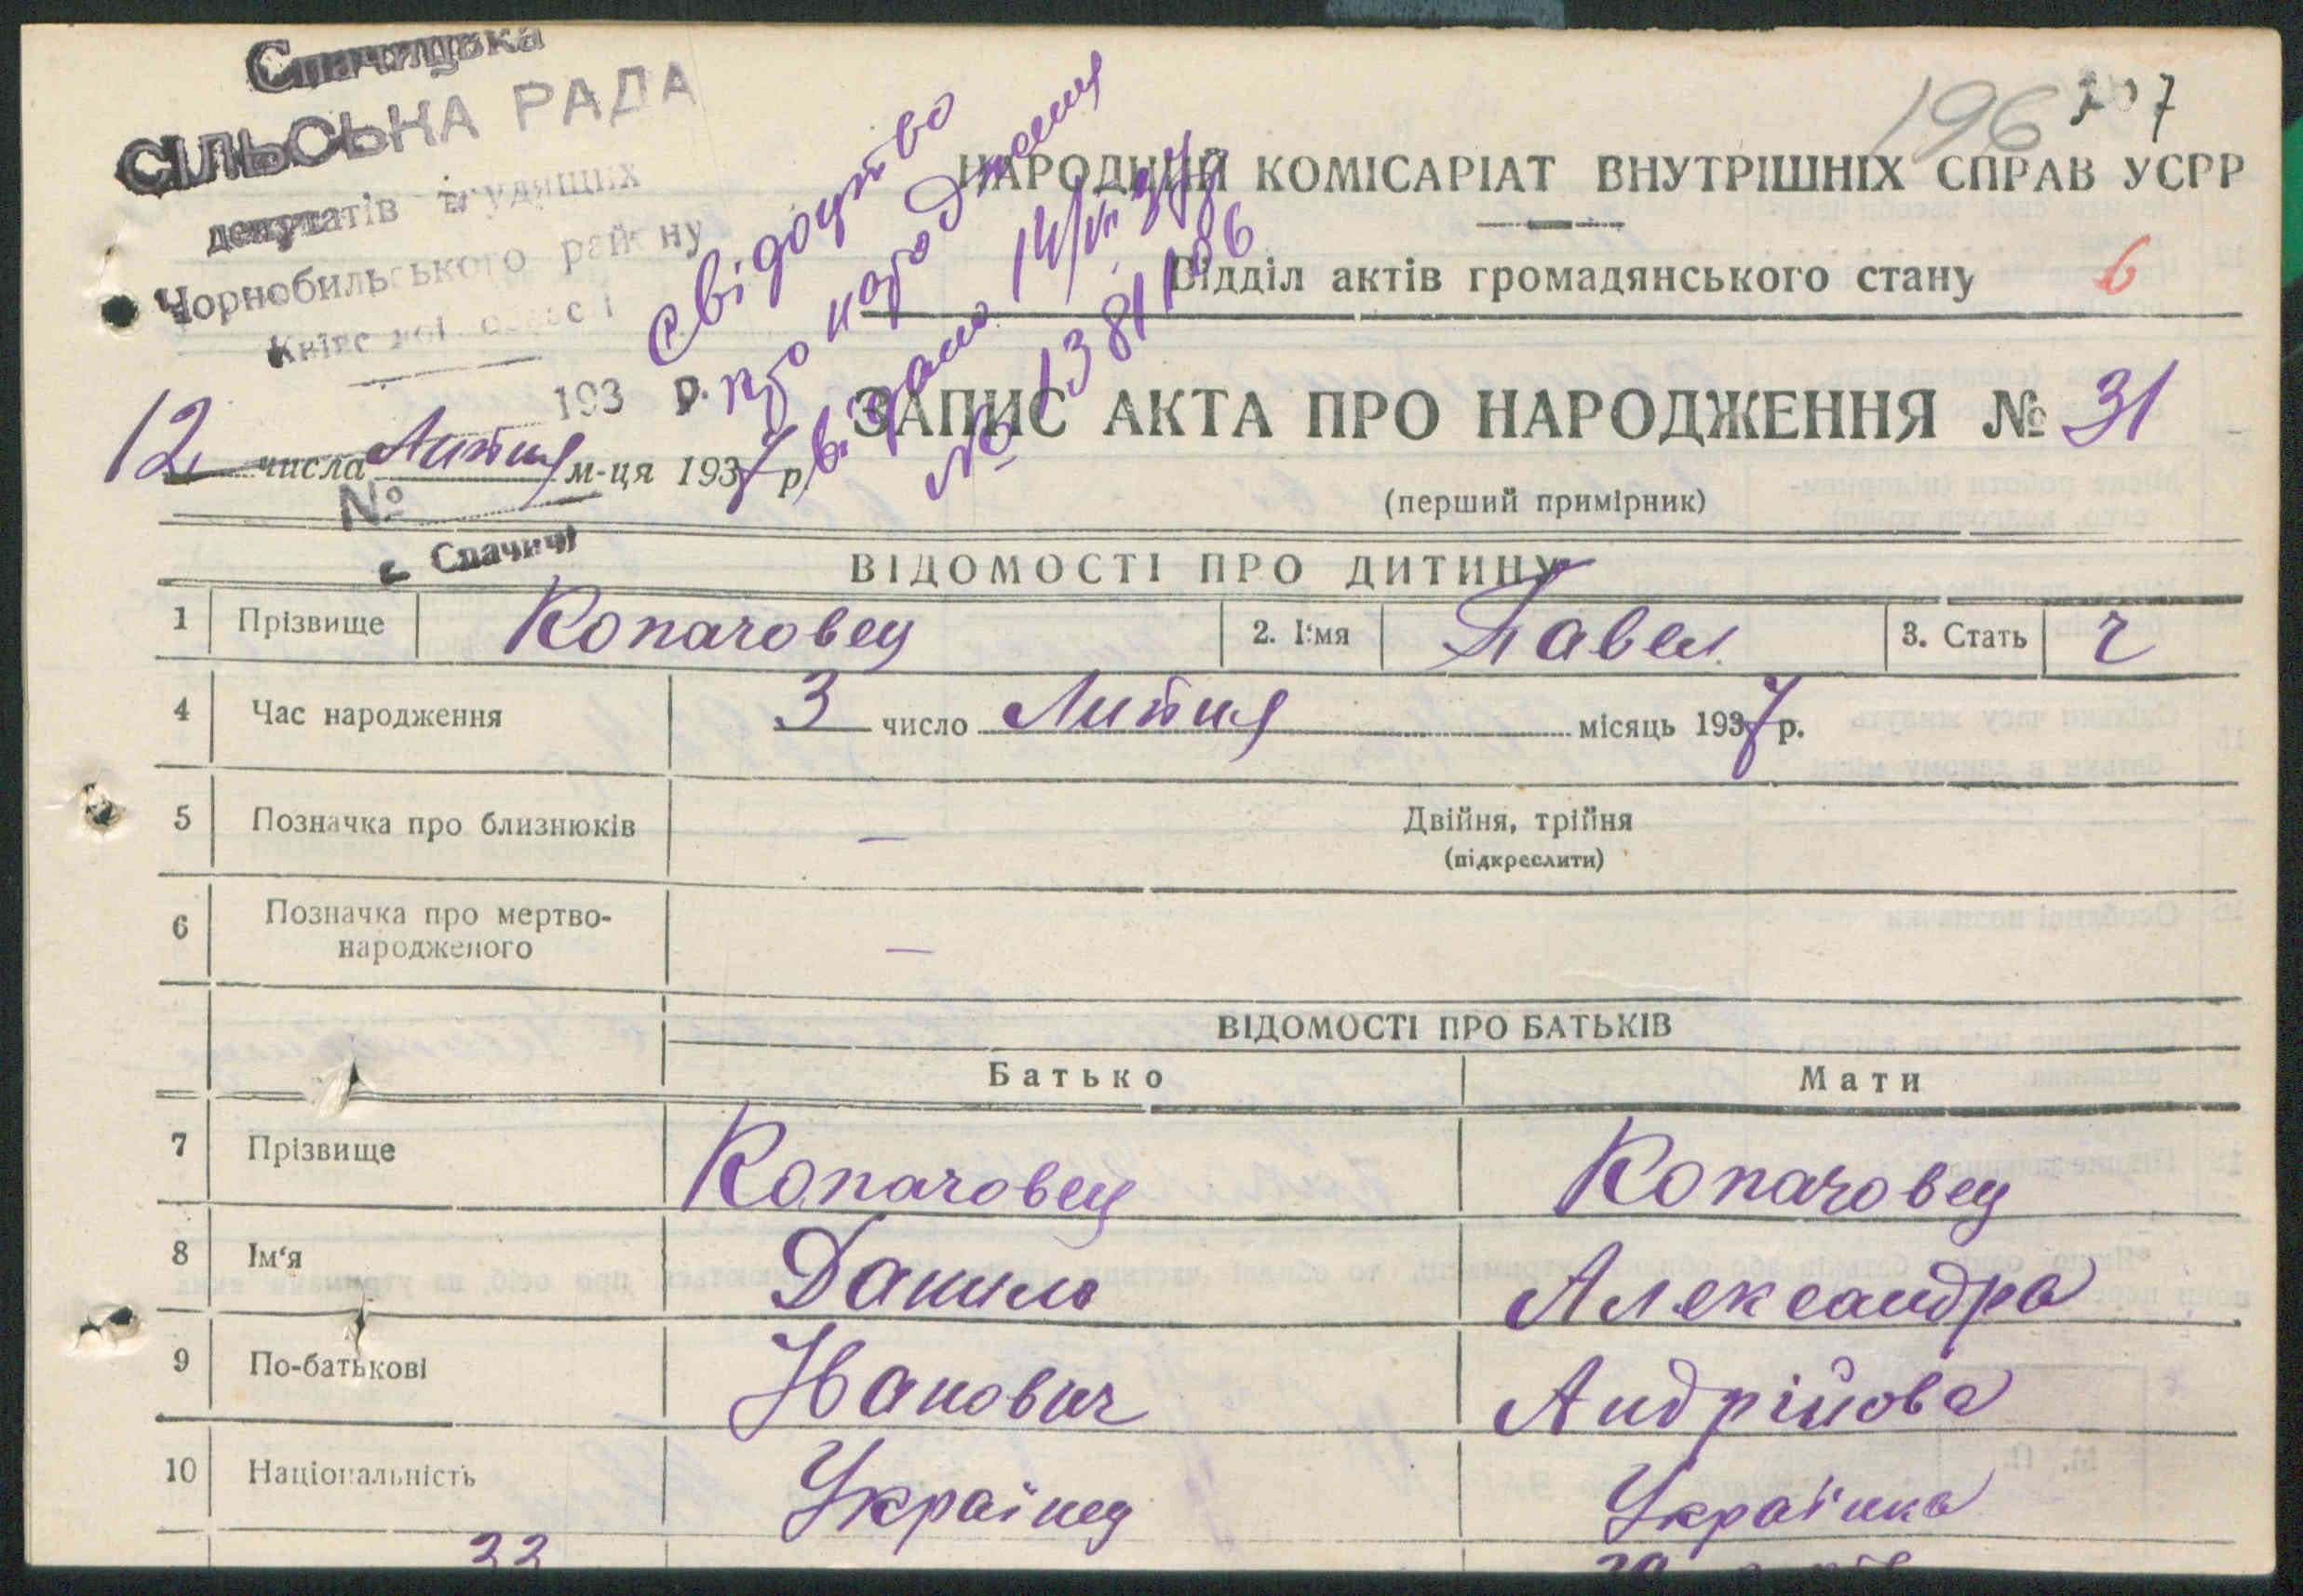 Спачицька
СІЛЬСЬКА РАДА
депутатів трудящих
Чорнобильського району
193 р.
12 числа Липня м-ця 1937 р.
№
с. Спачичі
Свідоцтво
про народження
видано
№ 1381106
196
НАРОДНИЙ КОМІСАРІАТ ВНУТРІШНІХ СПРАВ УСРР
Відділ актів громадянського стану 6
ЗАПИС АКТА ПРО НАРОДЖЕННЯ № 31
(перший примірник)
ВІДОМОСТІ ПРО ДИТИНУ
1 Прізвище Копачовец 2. І'мя Павел 3. Стать ч
4 Час народження 3 число Липня місяць 1937 р.
5 Позначка про близнюків — Двійня, трійня
(підкреслити)
6 Позначка про мертво-
народженого —
ВІДОМОСТІ ПРО БАТЬКІВ
Батько Мати
7 Прізвище Копачовец Копачовец
8 Ім'я Данило Александра
9 По-батькові Іванович Андрійова
10 Національність Українец Українка
22